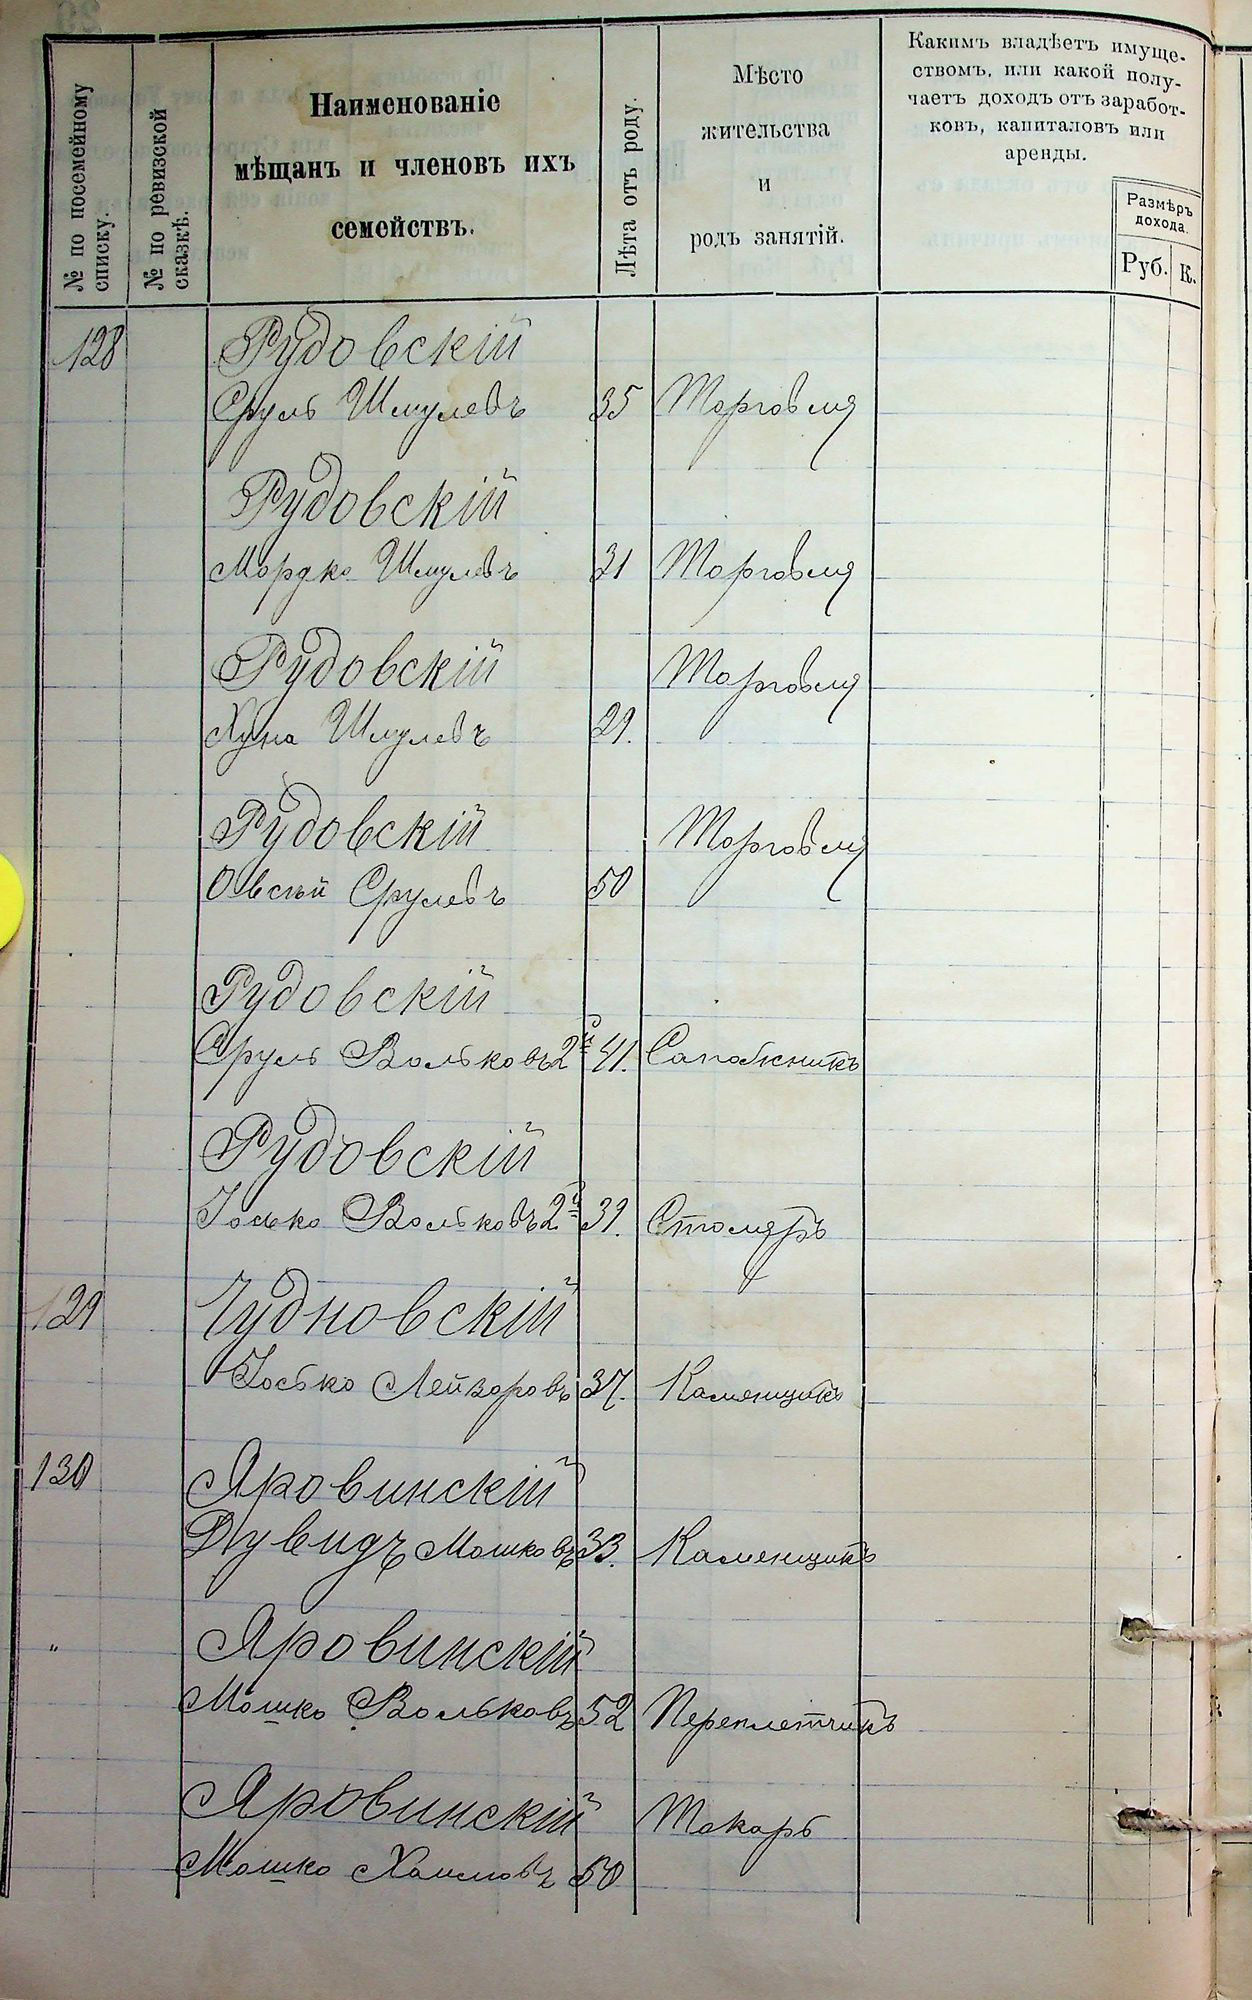 № по посемейному
списку.
№ по ревизской
сказкѣ.
Наименованіе
мѣщанъ и членовъ ихъ
семействъ.
Лѣта отъ роду.
Мѣсто
жительства
и
родъ занятій.
Какимъ владѣетъ имуще-
ствомъ, или какой полу-
чаетъ доходъ отъ заработ-
ковъ, капиталовъ или
аренды.
Размѣръ
дохода.
Руб. К.
128 Рудовскій
Сруль Шмулевъ 35 Торговля
Рудовскій
Мордко Шмулевъ 31 Торговля
Рудовскій Торговля
Хуна Шмулевъ 29.
Рудовскій Торговля
Овсѣй Срулевъ 50
Рудовскій
Сруль Вольковъ 2й 41. Сапожникъ
Рудовскій
Іосько Вольковъ 2й 39. Столяръ
129 Чудновскій
Іосько Лейзоровъ 37. Каменщикъ
130 Яровинскій
Дувидъ Мошковъ 33. Каменщикъ
" Яровинскій
Мошко Вольковъ 52 Переплетчикъ
Яровинскій Токарь
Мошко Хаимовъ 50